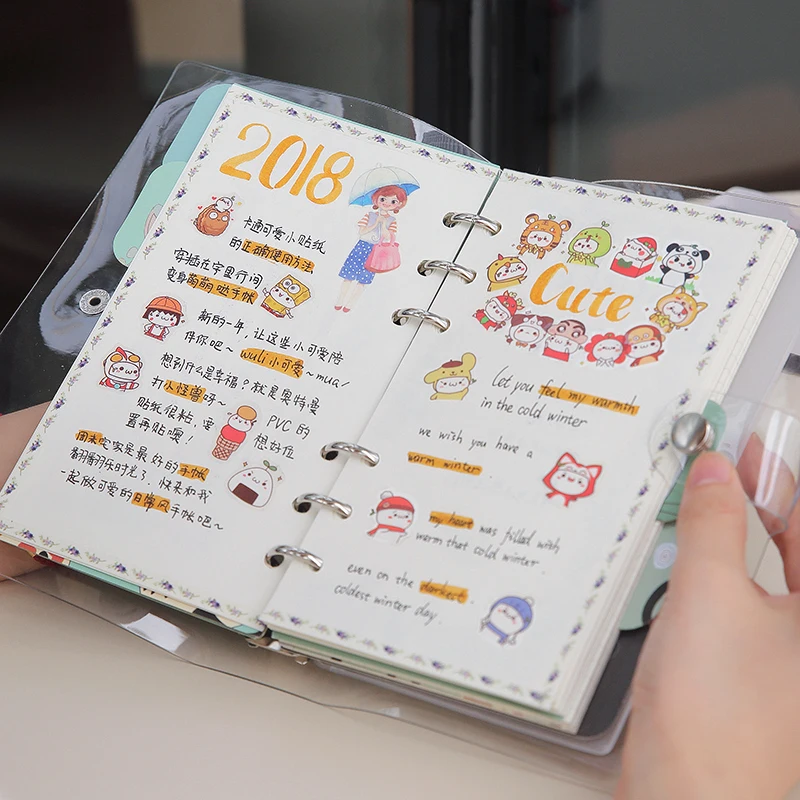 2018
卡通可爱小贴纸
的正确使用方法
穿插在字里行间
变身萌萌哒手帐
新的一年，让这些小可爱陪
伴你吧～wuli小可爱～mua!
想到什么是幸福？就是奥特曼
打小怪兽呀～
贴纸很粘，要 PVC的
想好位
置再贴噢！
周末宅家是最好的手帐
翻翻乐时光了，快来和我
一起做可爱的日常风手帐吧～
Cute
let you feel my warmth
in the cold winter
we wish you have a
warm winter
my heart was filled with
warm that cold winter.
even on the darkest.
coldest winter day.